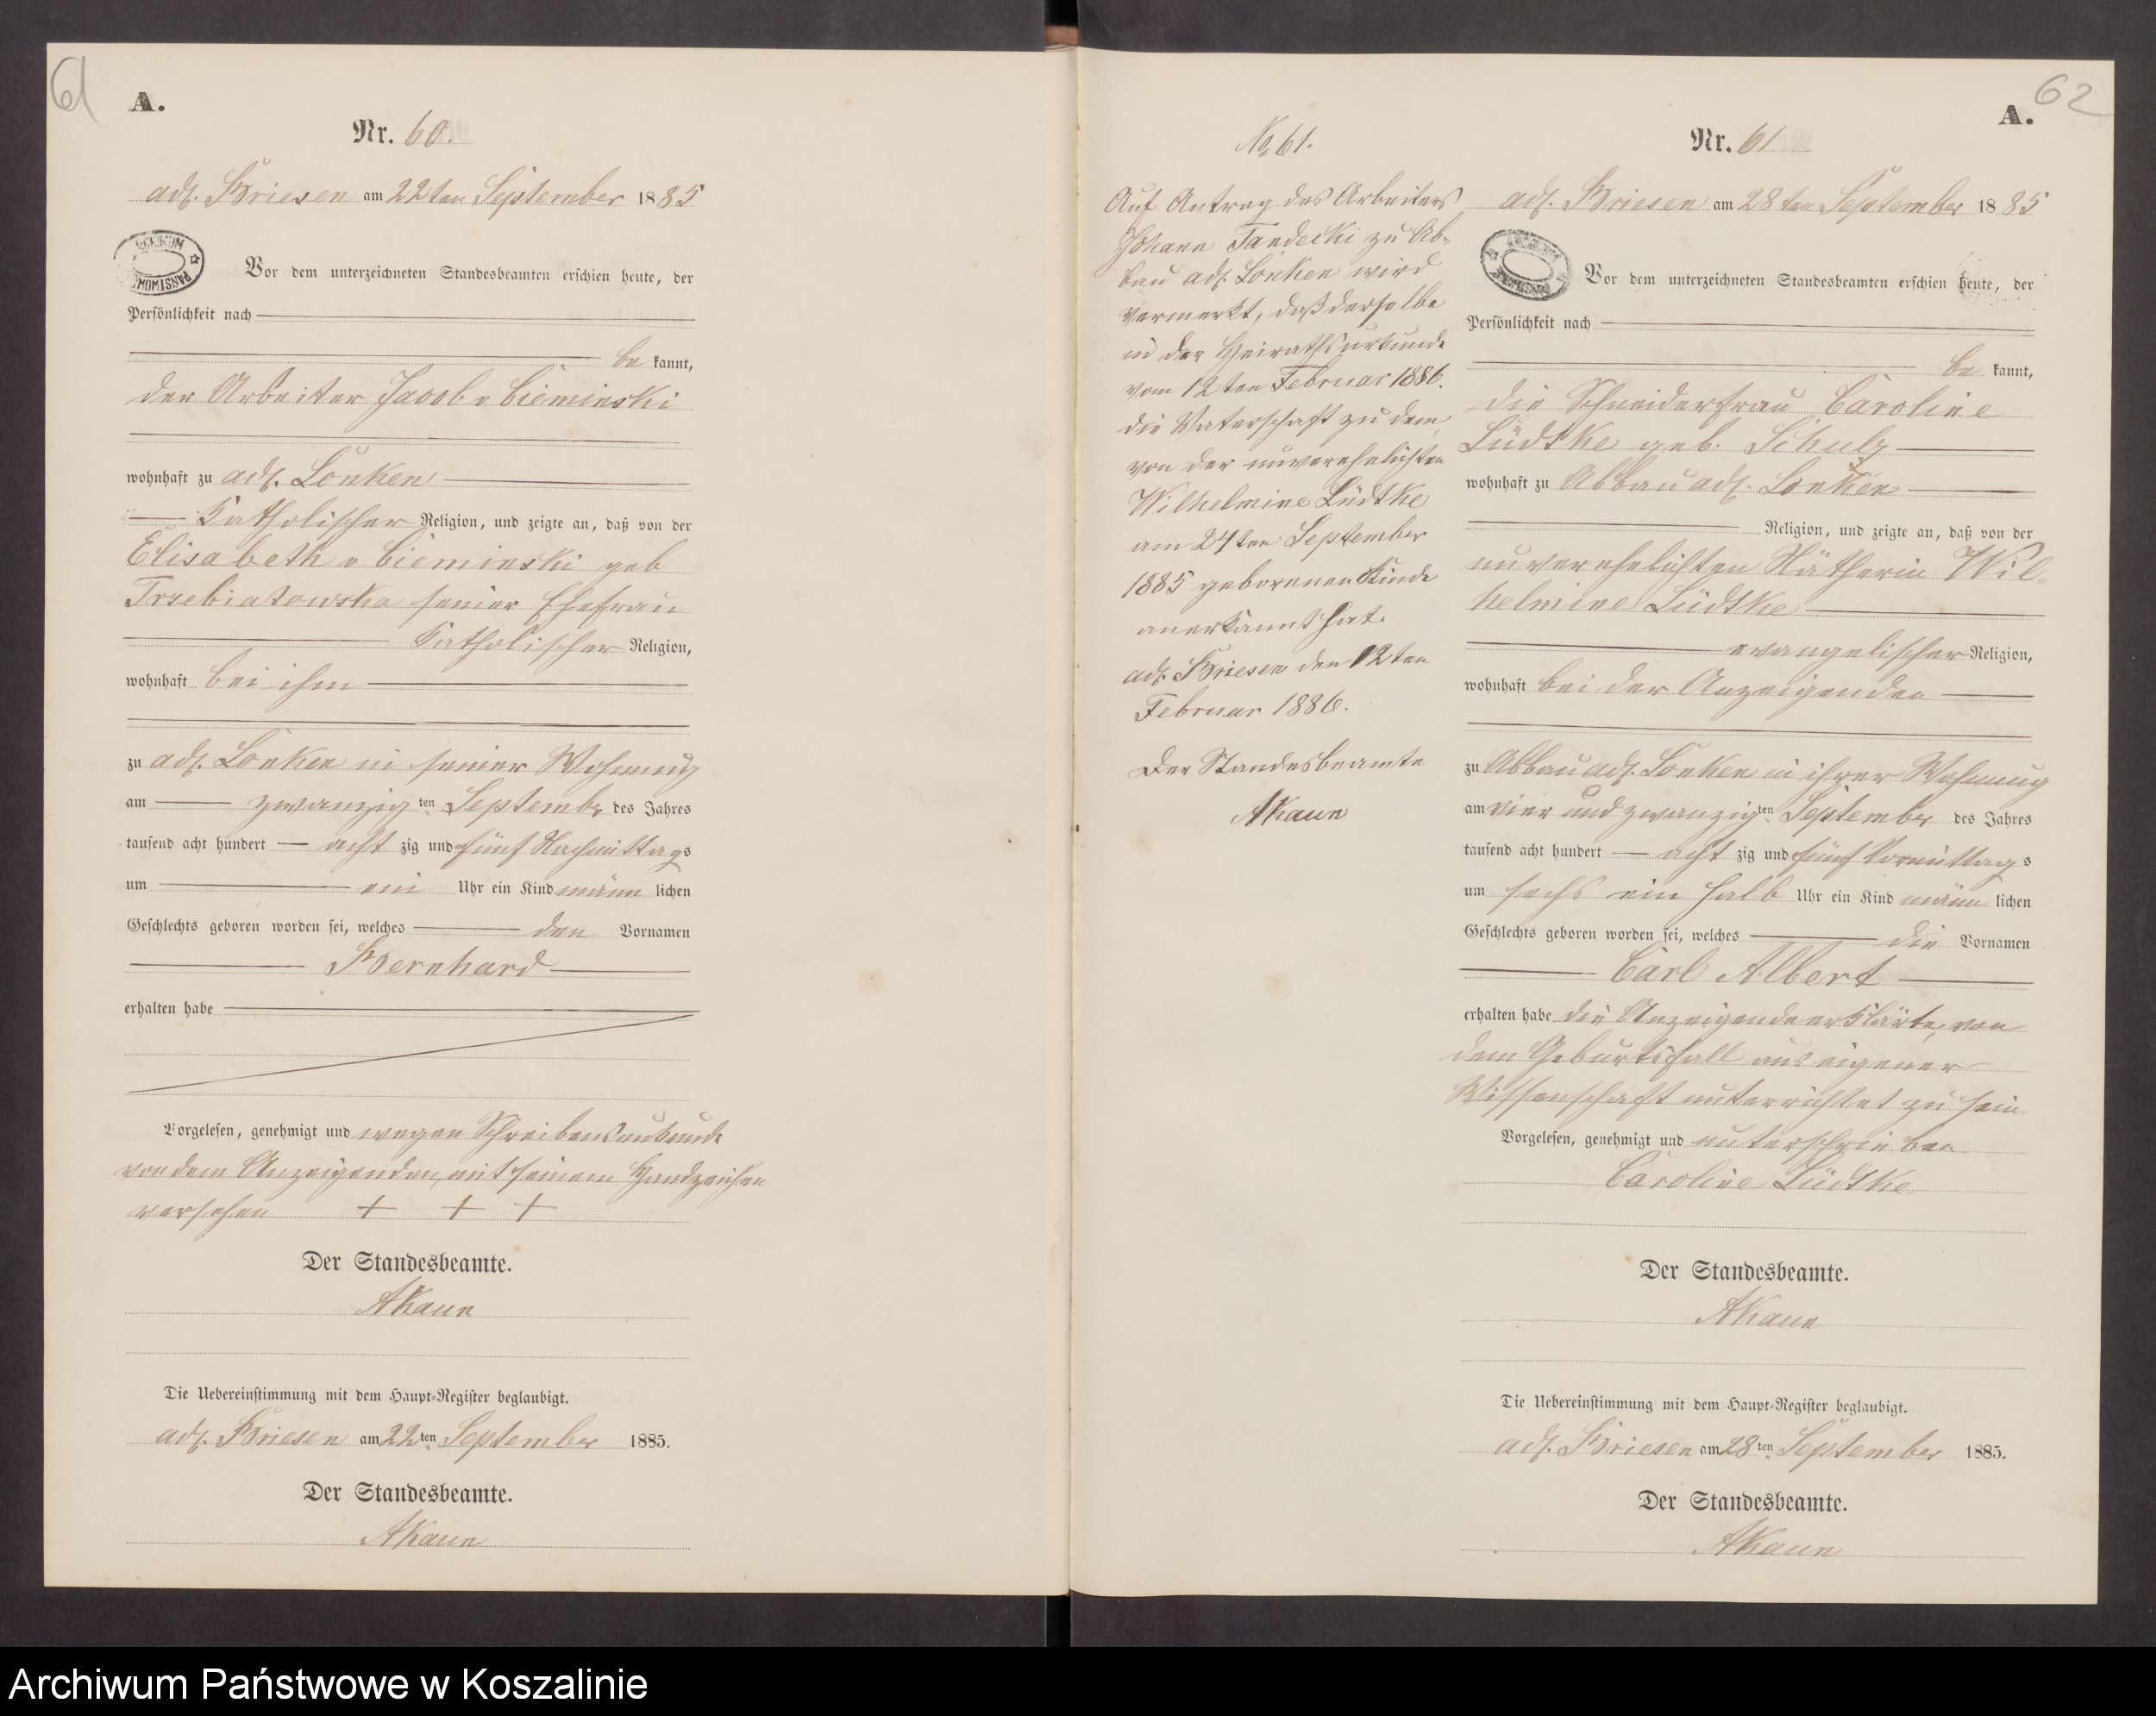 61
A.
Nr. 60.
adl. Briesen am 22ten September 1885
Vor dem unterzeichneten Standesbeamten erschien heute, der
Persönlichkeit nach
be kannt,
der Arbeiter Jacob v Cieminski
wohnhaft zu adl. Lonken
katholischer Religion, und zeigte an, daß von der
Elisabeth v Cieminski geb
Trzebiatowska seiner Ehefrau
katholischer Religion,
wohnhaft bei ihm
zu adl. Lonken in seiner Wohnung
am zwanzig ten September des Jahres
tausend acht hundert acht zig und fünf Nachmittags
um ein Uhr ein Kind männ lichen
Geschlechts geboren worden sei, welches den Vornamen
Bernhard
erhalten habe
Vorgelesen, genehmigt und wegen Schreibensunkunde
von dem Anzeigenden mit seinem Handzeichen
versehen + + +
Der Standesbeamte.
AKaun
Die Uebereinstimmung mit dem Haupt-Register beglaubigt.
adl. Briesen am 22ten September 1885.
Der Standesbeamte.
AKaun
No 61.
Auf Antrag des Arbeiters
Johann Tandecki zu Ab-
bau adl. Lonken wird
vermerkt, daß derselbe
in der Heirathsurkunde
vom 12ten Februar 1886.
die Vaterschaft zu dem,
von der unverehelichten
Wilhelmine Lüdtke
am 24ten September
1885 geborenen Kinde
anerkannt hat.
adl. Briesen den 12ten
Februar 1886.
Der Standesbeamte
AKaun
62
A.
Nr. 61
adl. Briesen am 28ten September 1885
Vor dem unterzeichneten Standesbeamten erschien heute, der
Persönlichkeit nach
be kannt,
die Schneiderfrau Caroline
Lüdtke geb. Schulz
wohnhaft zu Abbau adl. Lonken
Religion, und zeigte an, daß von der
unverehelichten Nätherin Wil-
helmine Lüdtke
evangelischer Religion,
wohnhaft bei der Anzeigenden
zu Abbau adl. Lonken in ihrer Wohnung
am vier und zwanzig ten September des Jahres
tausend acht hundert acht zig und fünf Vormittags
um sechs ein halb Uhr ein Kind männ lichen
Geschlechts geboren worden sei, welches die Vornamen
Carl Albert
erhalten habe die Anzeigende erklärte, von
dem Geburtsfall aus eigener
Wissenschaft unterrichtet zu sein
Vorgelesen, genehmigt und unterschrieben
Caroline Lüdtke
Der Standesbeamte.
AKaun
Die Uebereinstimmung mit dem Haupt-Register beglaubigt.
adl. Briesen am 28ten September 1885.
Der Standesbeamte.
AKaun
Archiwum Państwowe w Koszalinie